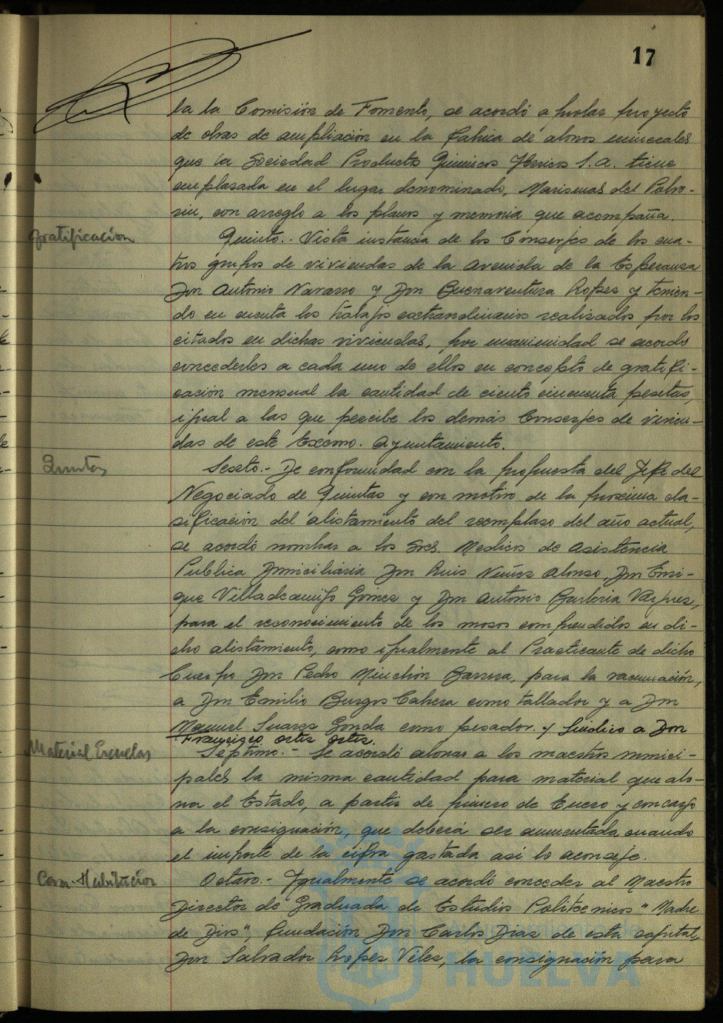 17
la la Comisión de Fomento, se acordó aprobar proyecto
de obras de ampliación en la fabrica de abonos minerales
que la Sociedad Productos Quimicos Ibericos S.A. tiene
emplazada en el lugar denominado, Marismas del
con arreglo a los planos y memoria que acompaña.
Gratificacion
Quinto.- Vista instancia de los Conserjes de los cua-
tro grupos de viviendas de la Avenida de la Esperanza
Don Antonio Navarro y Don Buenaventura Lopez y tenien-
do en cuenta los trabajos extraordinarios realizados por los
citados en dichas viviendas, por unanimidad se acordó
concederles a cada uno de ellos en concepto de gratifi-
cación mensual la cantidad de ciento cincuenta pesetas,
igual a las que percibe los demás Conserjes de vivien-
das de este Excmo. Ayuntamiento.
Quintas
Sexto.- De conformidad con la propuesta del Jefe del
Negociado de Quintas y con motivo de la proxima cla-
sificación del alistamiento del reemplazo del año actual,
se acordó nombrar a los Sres. Medicos de Asistencia
Publica Domiciliaria Don Luis Nuñez Alonso, Don Enri-
que Gomez y Don Antonio
para el reconocimiento de los mozos comprendidos en di-
cho alistamiento, como igualmente al Practicante de dicho
Cuerpo Don Pedro Barrera, para la vacunación,
a Don Emilio Burgos Cabera como tallador y a Don
Manuel Suarez como pesador. y Sindico a Don
Francisco Orta Orta.
Material Escuelas
Séptimo.- Se acordó abonar a los maestros munici-
pales la misma cantidad para material que abo-
na el Estado, a partir de primero de Enero y con cargo
a la consignación, que deberá ser aumentada cuando
el importe de la cifra gastada así lo aconseje.
Casa-Habitación
Octavo.- Igualmente se acordó conceder al Maestro
Director de Graduada de Estudios Politecnicos "Madre
de Dios", fundación Don Carlos Diaz de esta capital,
Don Salvador Lopez Velez, la consignación para
HUELVA